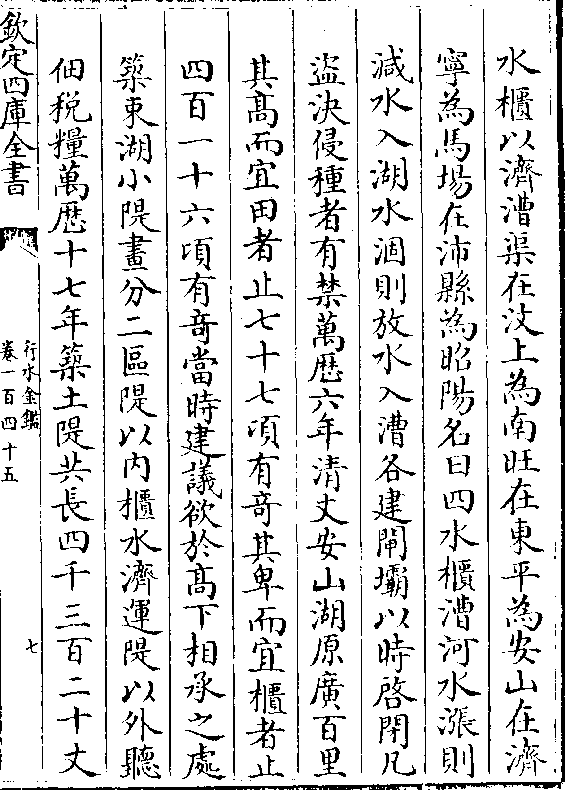 水櫃以濟漕渠在汶上為南旺在東平為安山在濟
寧為馬場在沛縣為昭陽名曰四水櫃漕河水漲則
減水入湖水涸則放水入漕各建閘壩以時啓閉凡
盜決侵種者有禁萬歴六年清丈安山湖原廣百里
其髙而宜田者止七十七項有竒其卑而宜櫃者止
四百一十六項有竒當時建議欲於髙下相承之處
築東湖小隄畫分二區隄以内櫃水濟運隄以外聽
佃税糧萬歴十七年築土隄共長四千三百二十丈
欽定四庫全書
行水金鑑
卷一百四十五
七